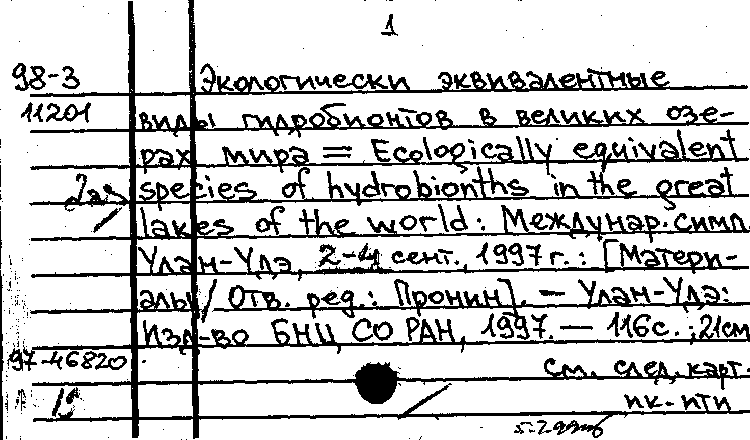 1
98-3 Экологически эквивалентные
11201 виды гидробионтов в великих озе-
рах мира = Ecologically equivalent
species of hydrobionths in the great
lakes of the world: Междунар. симп.
Улан-Удэ, 2-4 сент., 1997 г.: [Матери-
алы / Отв. ред.: Пронин]. — Улан-Удэ:
Изд-во БНЦ СО РАН, 1997. — 116 с.; 21 см
97-46820 см. след. карт.
пк-пти